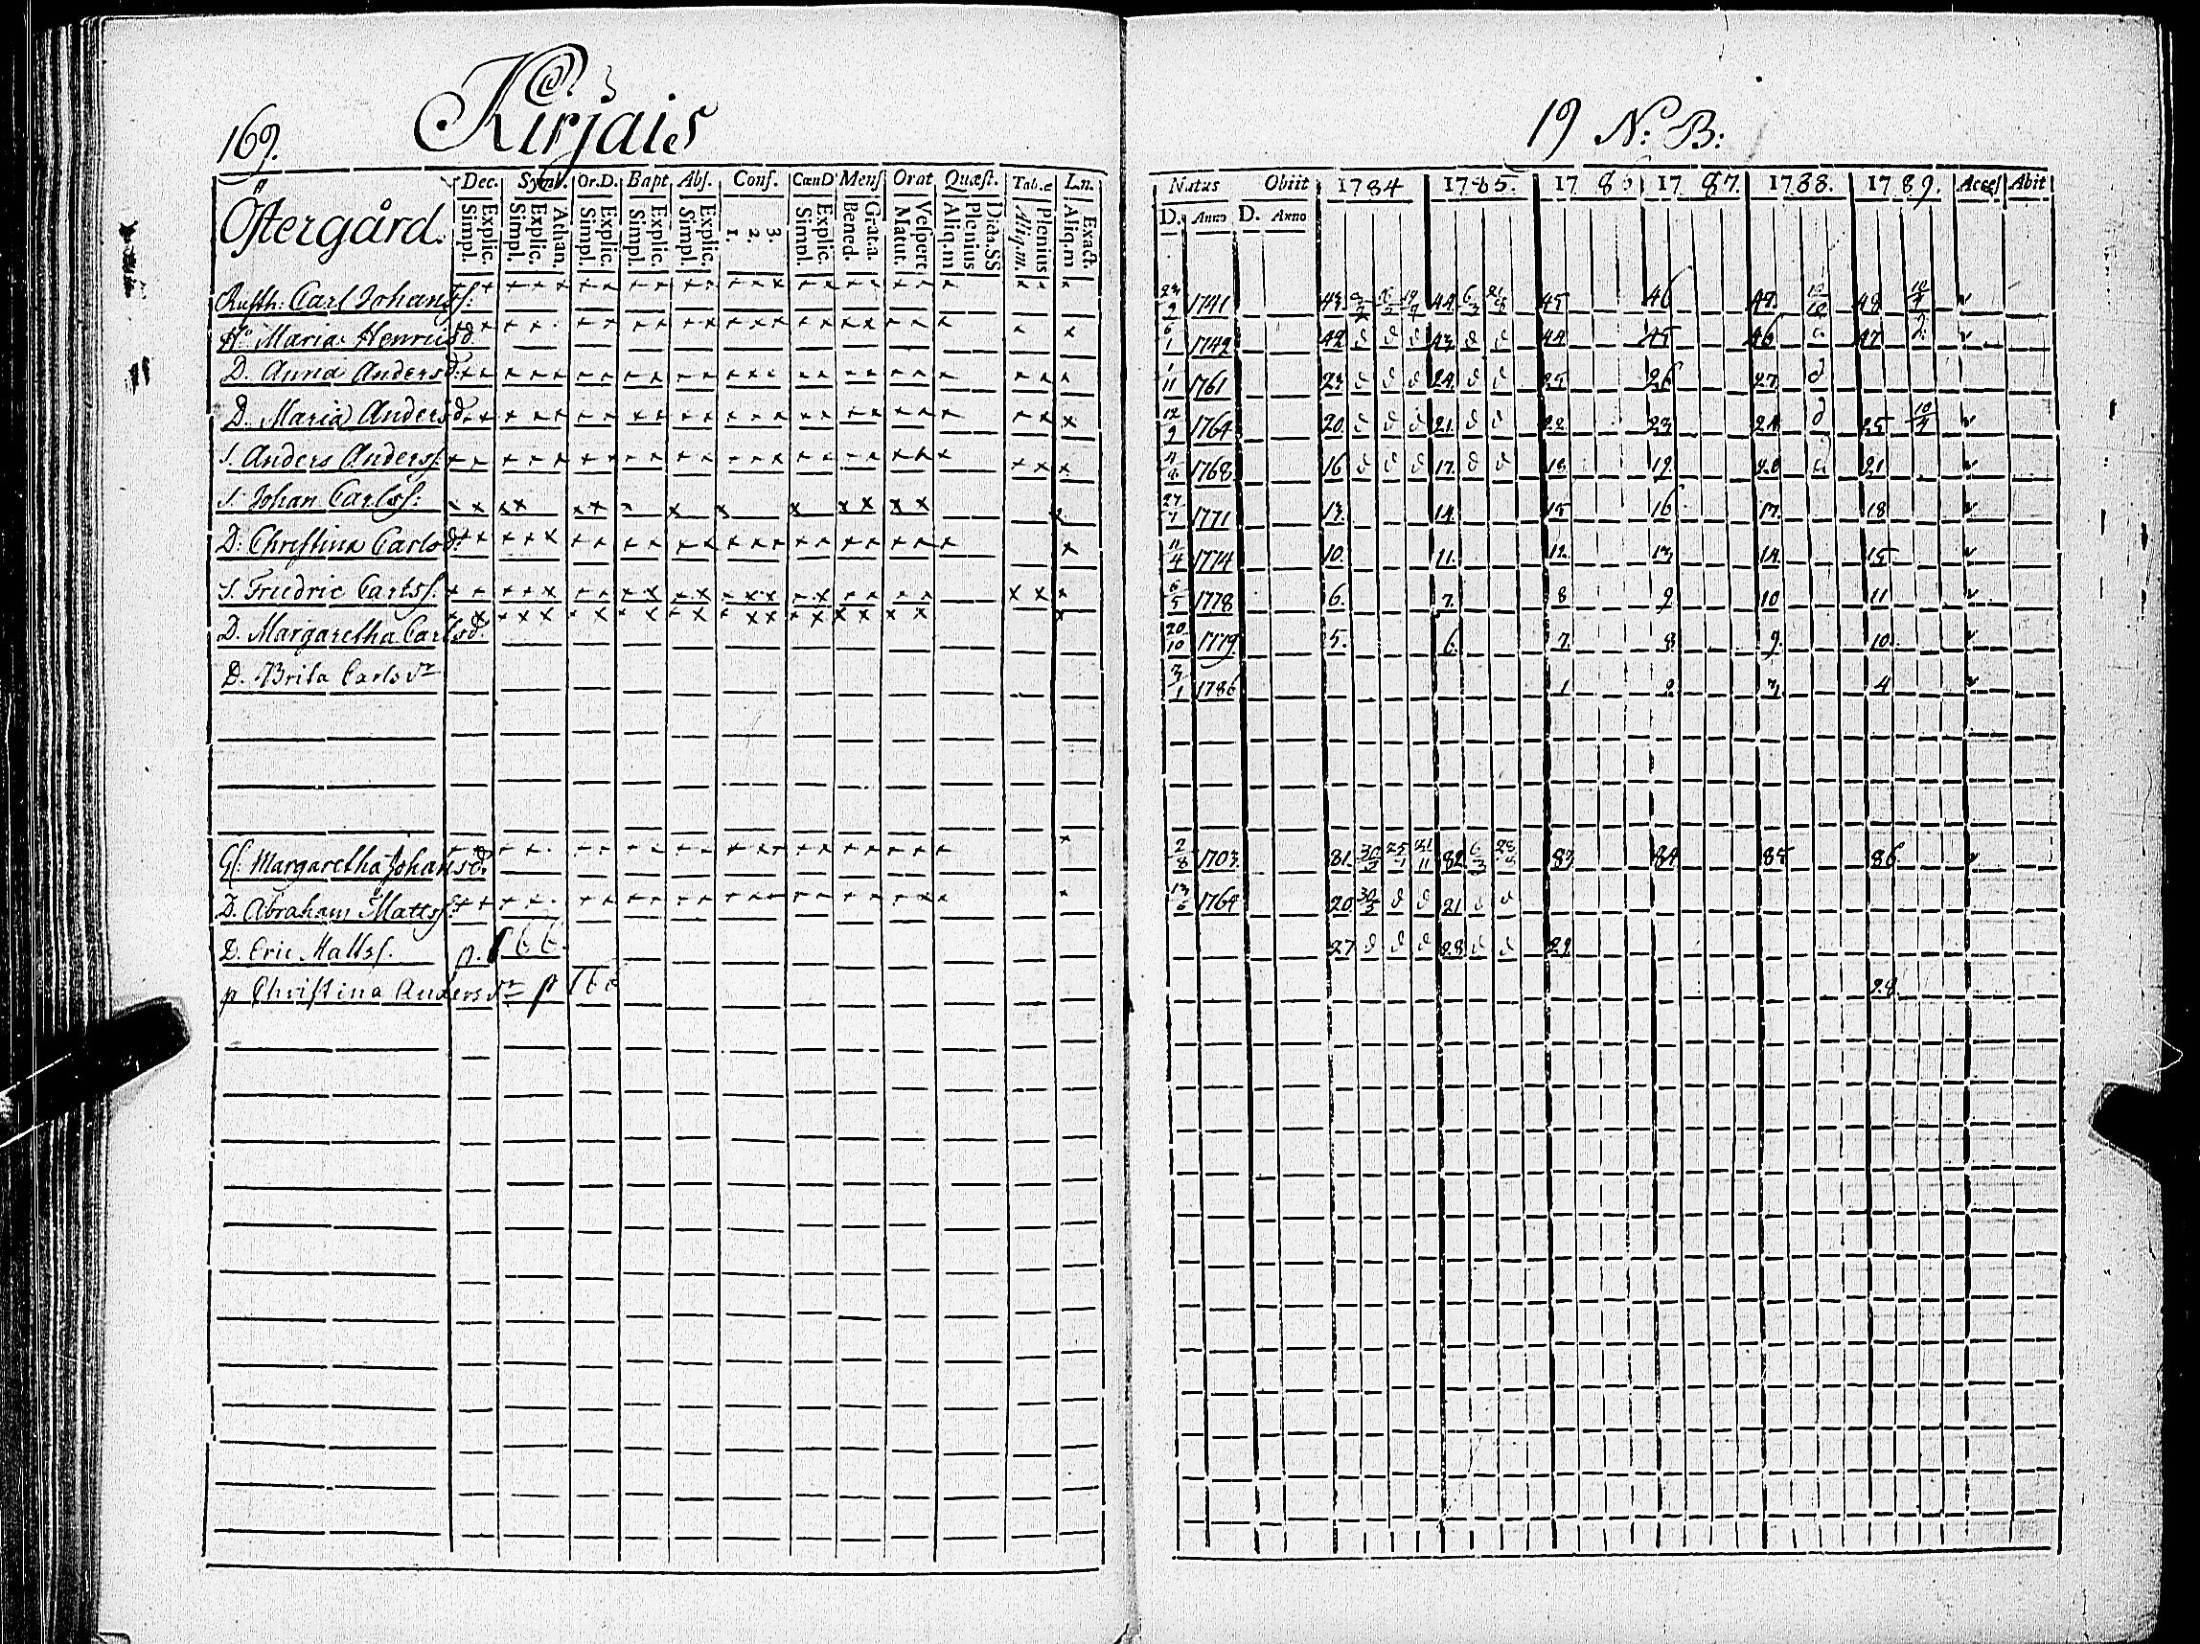 169. Kirjais
Östergård.
Dec. Symb. Or.D. Bapt Abs. Conf. CœnD Mens Orat Quæst. Tab.æ Ln.
Simpl. Explic. Simpl. Explic. Athan. Simpl. Explic. Simpl. Explic. Simpl. Explic. 1. 2. 3. Simpl. Explic. Bened. Grat.a. Matut. Vespert Aliq.m Plenius Dicta.SS Aliq.m. Plenius Aliq.m Exact.
Rusth: Carl Johanss:
Hu Maria Henricsd.
D. Anna Andersd:
D. Maria Andersd.
S. Anders Anderss.
S. Johan Carlss:
D: Christina Carlsd:
S. Fredric Carlss.
D. Margaretha Carlsd.
D. Brita Carlsdr
Margaretha Johansd.
D. Abraham Mattss:
D. Eric Mattss. p. 166.
p Christina Andersdr p
19 N: B:
Natus Obiit 1784 1785. 1786 1787. 1788. 1789. Access Abit
D. Anno D. Anno
23/9 1741 43. 44. 6/3 45 46 47. 48
6/1 1742 42 d d d 43 d d 44 45 46 47 d
1/11 1761 23 d d d 24 d d 25 26 27 d
12/9 1764 20 d d d 21 d d 22 23 24 d 25
1768 16 d d d 17. d d 18 19 20 d 21
27/7 1771 13. 14 15 16 17 18
11/4 1774 10. 11. 12. 13 14 15
6/5 1778 6. 7. 8 9 10 11
20/10 1779 5. 6. 7. 8 9. 10.
3/1 1786 1 2 3 4
2/8 1703. 81. 30/5 82 6/3 83 84 85 86
13/6 1764 20. 30/5 d d 21 d d
27 d d d 28 d d 29
28